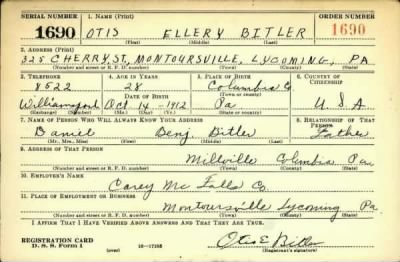 SERIAL NUMBER 1. NAME (Print) ORDER NUMBER
1690 OTIS ELLERY BITLER 1690
(First) (Middle) (Last)
2. ADDRESS (Print)
325 CHERRY ST, MONTOURSVILLE, LYCOMING, PA
(Number and street or R. F. D. number) (Town) (County) (State)
3. TELEPHONE 4. AGE IN YEARS 5. PLACE OF BIRTH 6. COUNTRY OF CITIZENSHIP
8522 28 Columbia Co
DATE OF BIRTH (Town or county)
Williamsport Oct. 14 - 1912 Pa U.S.A
(Exchange) (Number) (Mo.) (Day) (Yr.) (State or country)
7. NAME OF PERSON WHO WILL ALWAYS KNOW YOUR ADDRESS 8. RELATIONSHIP OF THAT PERSON
Daniel Benj. Bitler Father
(Mr., Mrs., Miss) (First) (Middle) (Last)
9. ADDRESS OF THAT PERSON
Millville Columbia
(Number and street or R. F. D. number) (Town) (County) (State)
10. EMPLOYER'S NAME
Carey Mc Falls Co
11. PLACE OF EMPLOYMENT OR BUSINESS
Montoursville Lycoming Pa
(Number and street or R. F. D. number) (Town) (County) (State)
I AFFIRM THAT I HAVE VERIFIED ABOVE ANSWERS AND THAT THEY ARE TRUE.
REGISTRATION CARD
D. S. S. Form 1 (over) Otis E Bitler
(Registrant's signature)